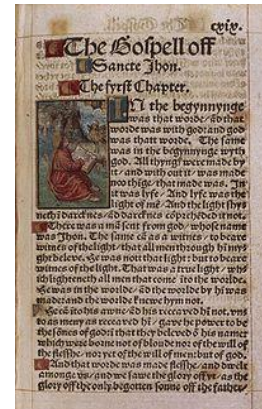 cxiv.
The Gospell off
Sancte Jhon.
The fyrst Chapter.
IN the begynnynge
was that worde/ ād that
worde was with god: and god
was thatt worde. The same
was in the begynnynge wyth
god. All thyngs were made by
it/ and with out it/ was made
no thīge/ that made was. In
it was lyfe/ And lyfe was the
light of mē/ And the light shy
neth ī darcknes/ ād darcknes cōprehēded it not.
There was a mā sent from god/ whose name
was Jhon. The same cā as a witnes/ to beare
witnes of the light/ that all men through hī myght
beleve. He was nott that light: but to beare
witnes of the light. That was a true light/ whi
ch lighteneth all men that come īto the worlde.
He was in the worlde/ ād the worlde by hī was
made: and the worlde knewe hym not.
He cā īto his awne/ ād his receaved hī not. vns
to as meny as receaved hī/ gave he power to be
the sones of god: ī that they beleved ō his name:
which were borne not of bloude nor of the will of
the flesshe/ nor yet of the will of men: but of god.
And that worde was made flesshe/ and dwelt
amonge vs/ and we sawe the glory off yt/ as the
glory off the only begotten sonne off the father